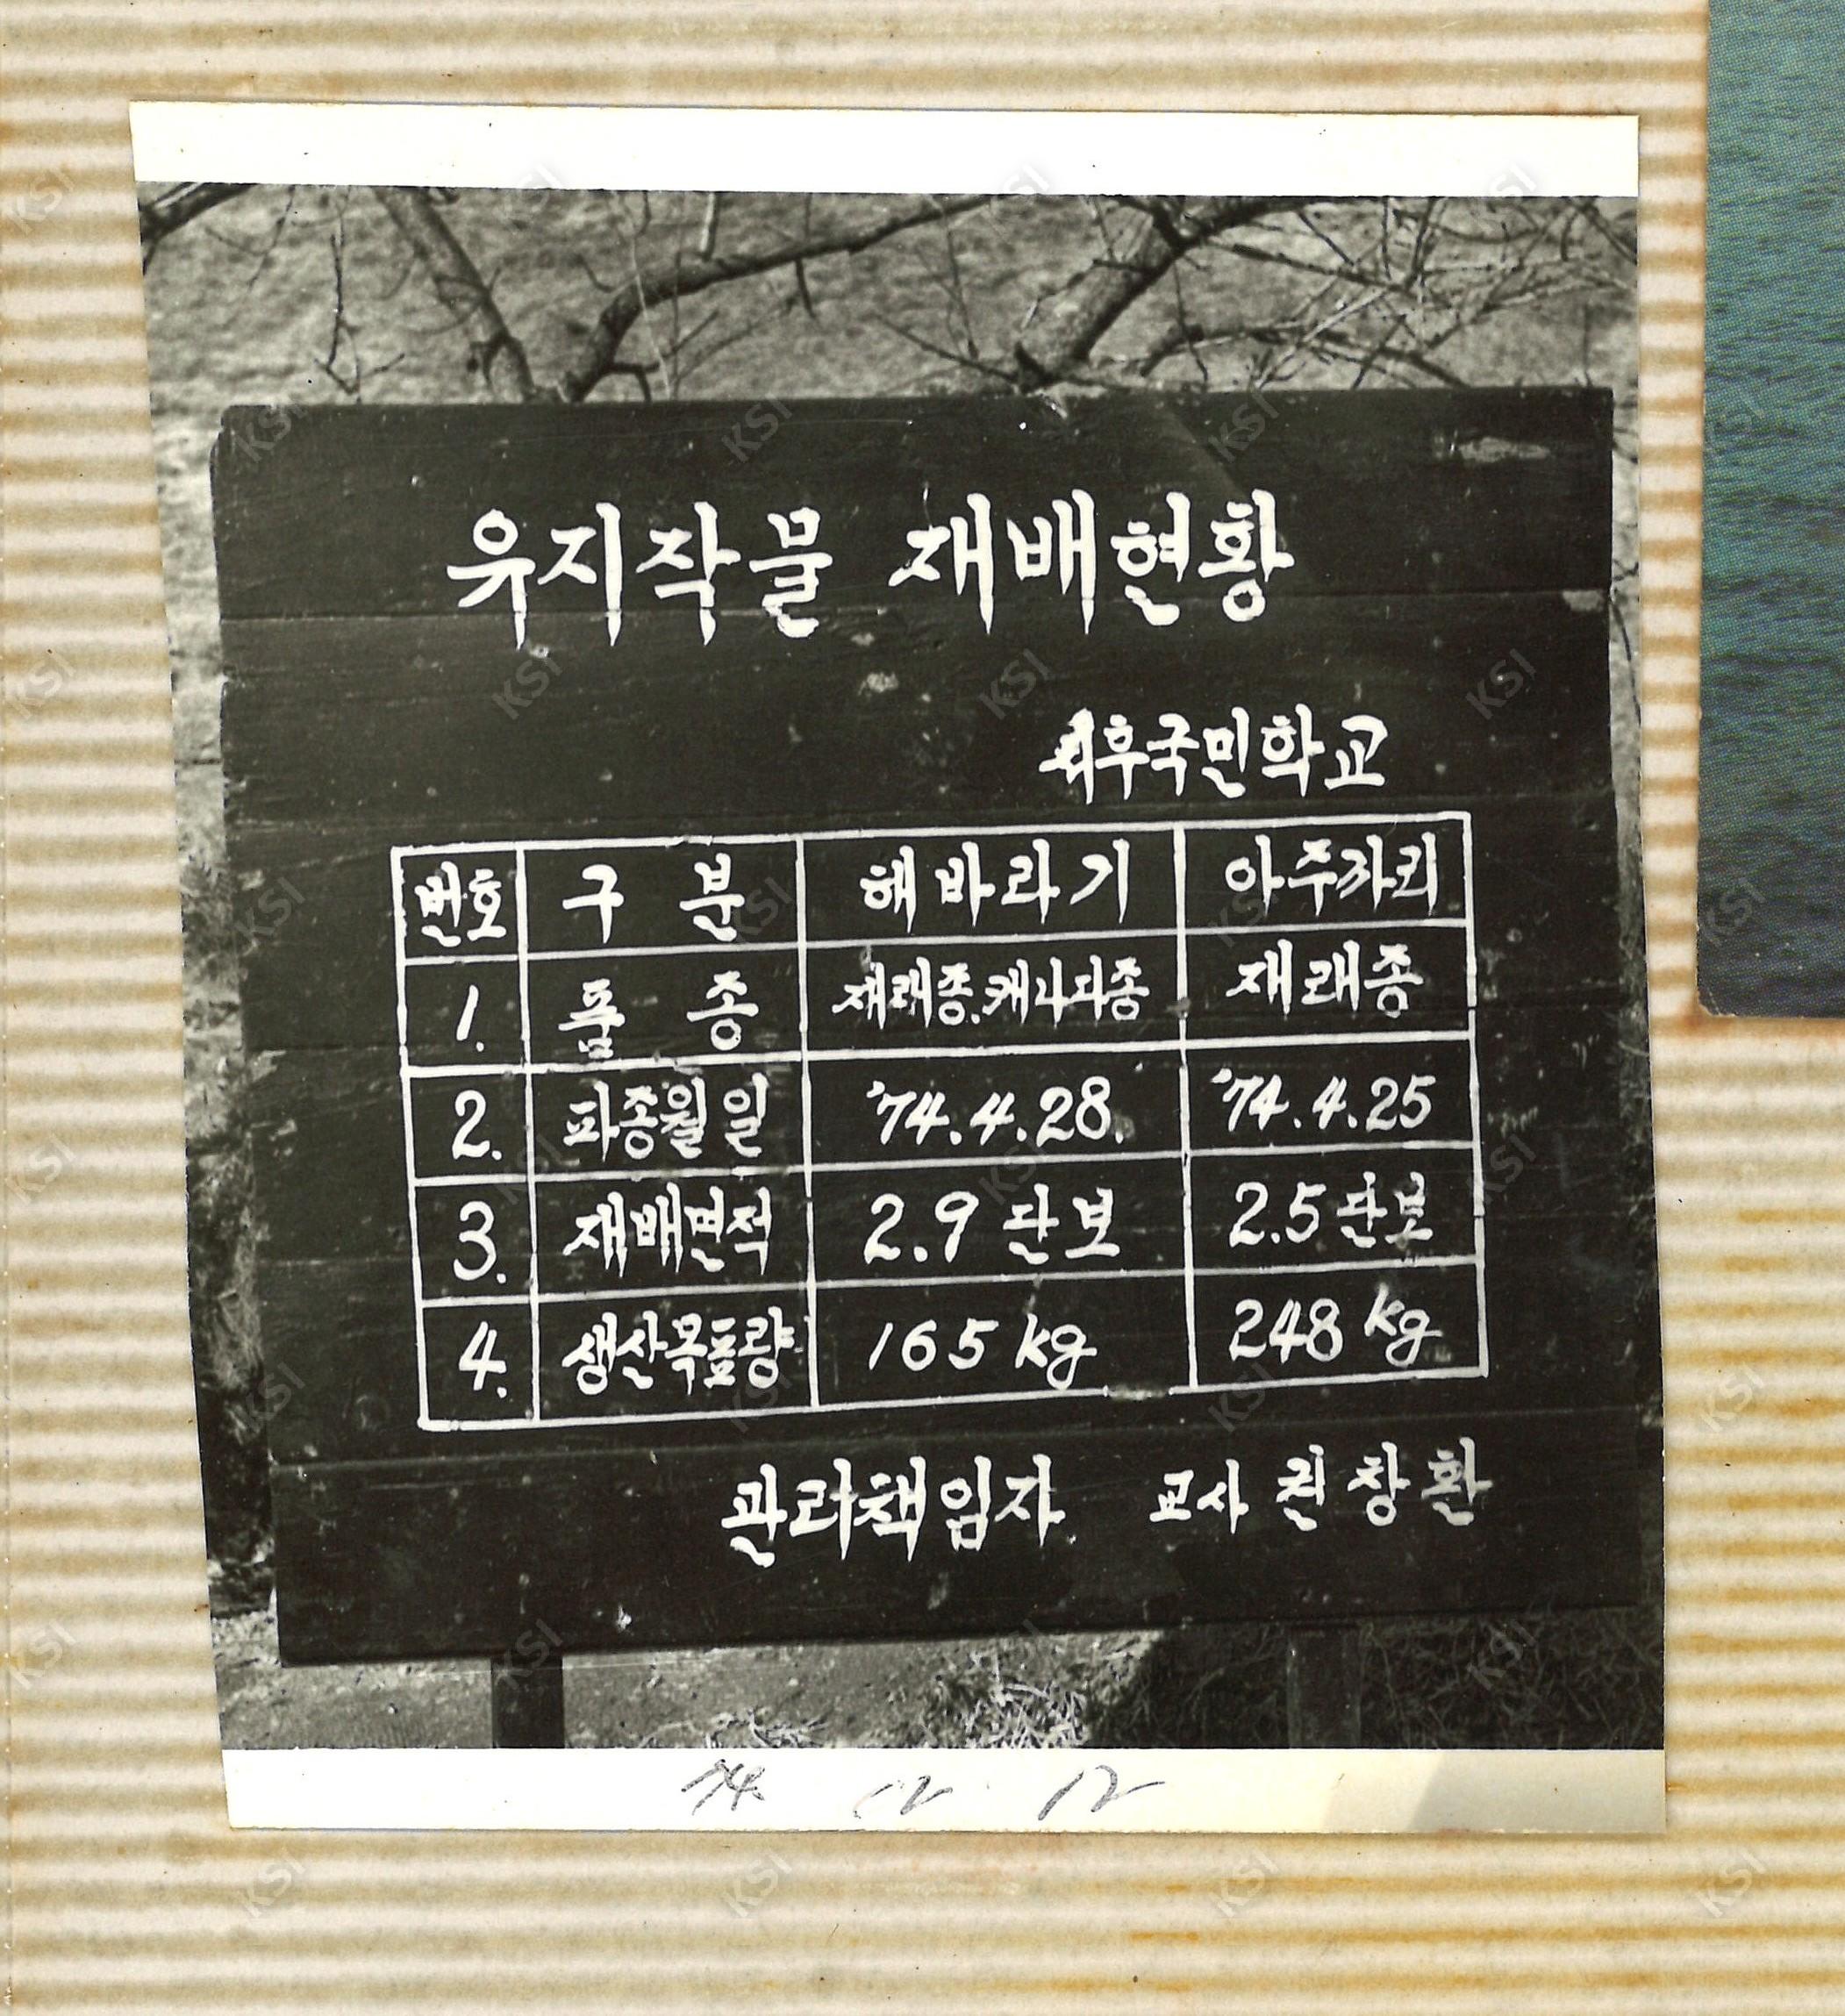 유지작물 재배현황
국민학교
번호 구 분 해바라기 아주까리
1. 품 종 재래종.캐나다종 재래종
2. 파종월일 '74.4.28. '74.4.25
3. 재배면적 2.9 단보 2.5 단보
4. 생산목표량 165 kg 248 kg
관리책임자 교사 권창환
74 12 12
KSI